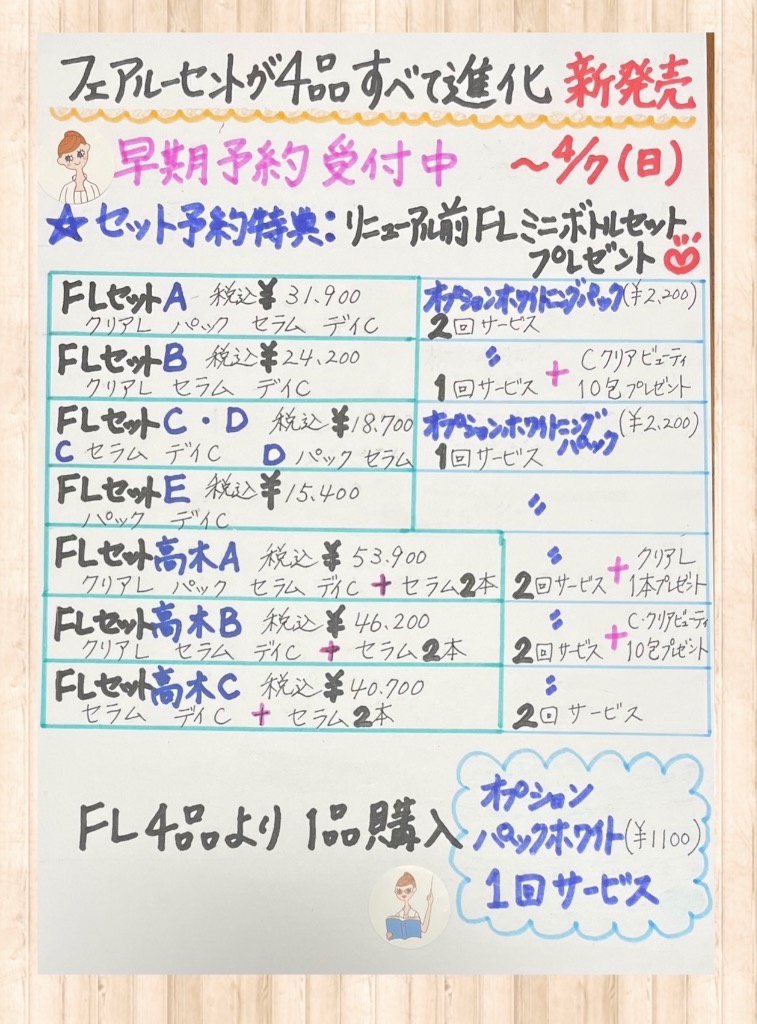 フェアルーセントが4品すべて進化 新発売
早期予約受付中 ～4/7(日)
☆セット予約特典:リニューアル前FLミニボトルセット
プレゼント
FLセットA 税込¥31.900
クリアL パック セラム デイC
オプションホワイトニングパック(¥2,200)
2回サービス
FLセットB 税込¥24,200
クリアL セラム デイC
〃 + Cクリアビューティ
1回サービス 10包プレゼント
FLセットC・D 税込¥18.700
C セラム デイC D パック セラム
オプションホワイトニング (¥2,200)
パック
1回サービス
FLセットE 税込¥15.400
パック デイC
〃
FLセット高木A 税込¥53.900
クリアL パック セラム デイC + セラム2本
〃 + クリアL
2回サービス 1本プレゼント
FLセット高木B 税込¥46.200
クリアL セラム デイC + セラム2本
〃 + C・クリアビューティ
2回サービス 10包プレゼント
FLセット高木C 税込¥40.700
セラム デイC + セラム2本
〃
2回サービス
FL4品より1品購入
オプション
パックホワイト(¥1100)
1回サービス